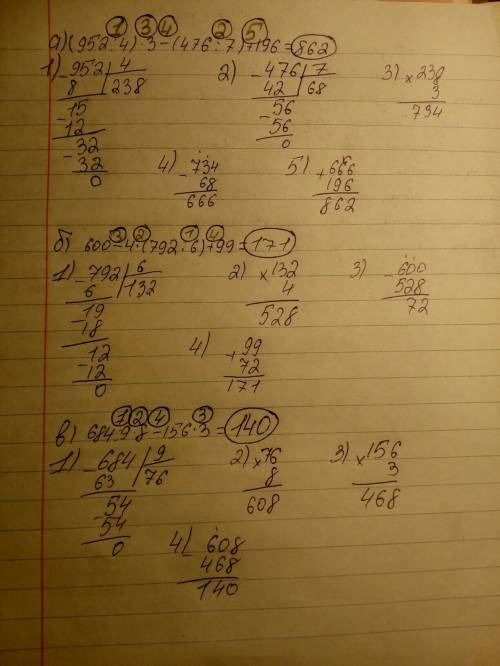 ① ③ ④ ② ⑤
а) (952:4)·3-(476:7)+196=862
1) -952 4 2) -476 7 3) ×238
8 238 42 68 3
-15 -56 734
12 56
-32 0
32 4) -734 5) +666
0 68 196
666 862
③ ② ① ④
б) 600-4·(792:6)+99=171
1) -792 6 2) ×132 3) -600
6 132 4 528
-19 528 72
18
12 4) +99
-12 72
0 171
① ② ④ ③
в) 684:9·8-156·3=140
1) -684 9 2) ×76 3) ×156
63 76 8 3
-54 608 468
54
0 4) -608
468
140